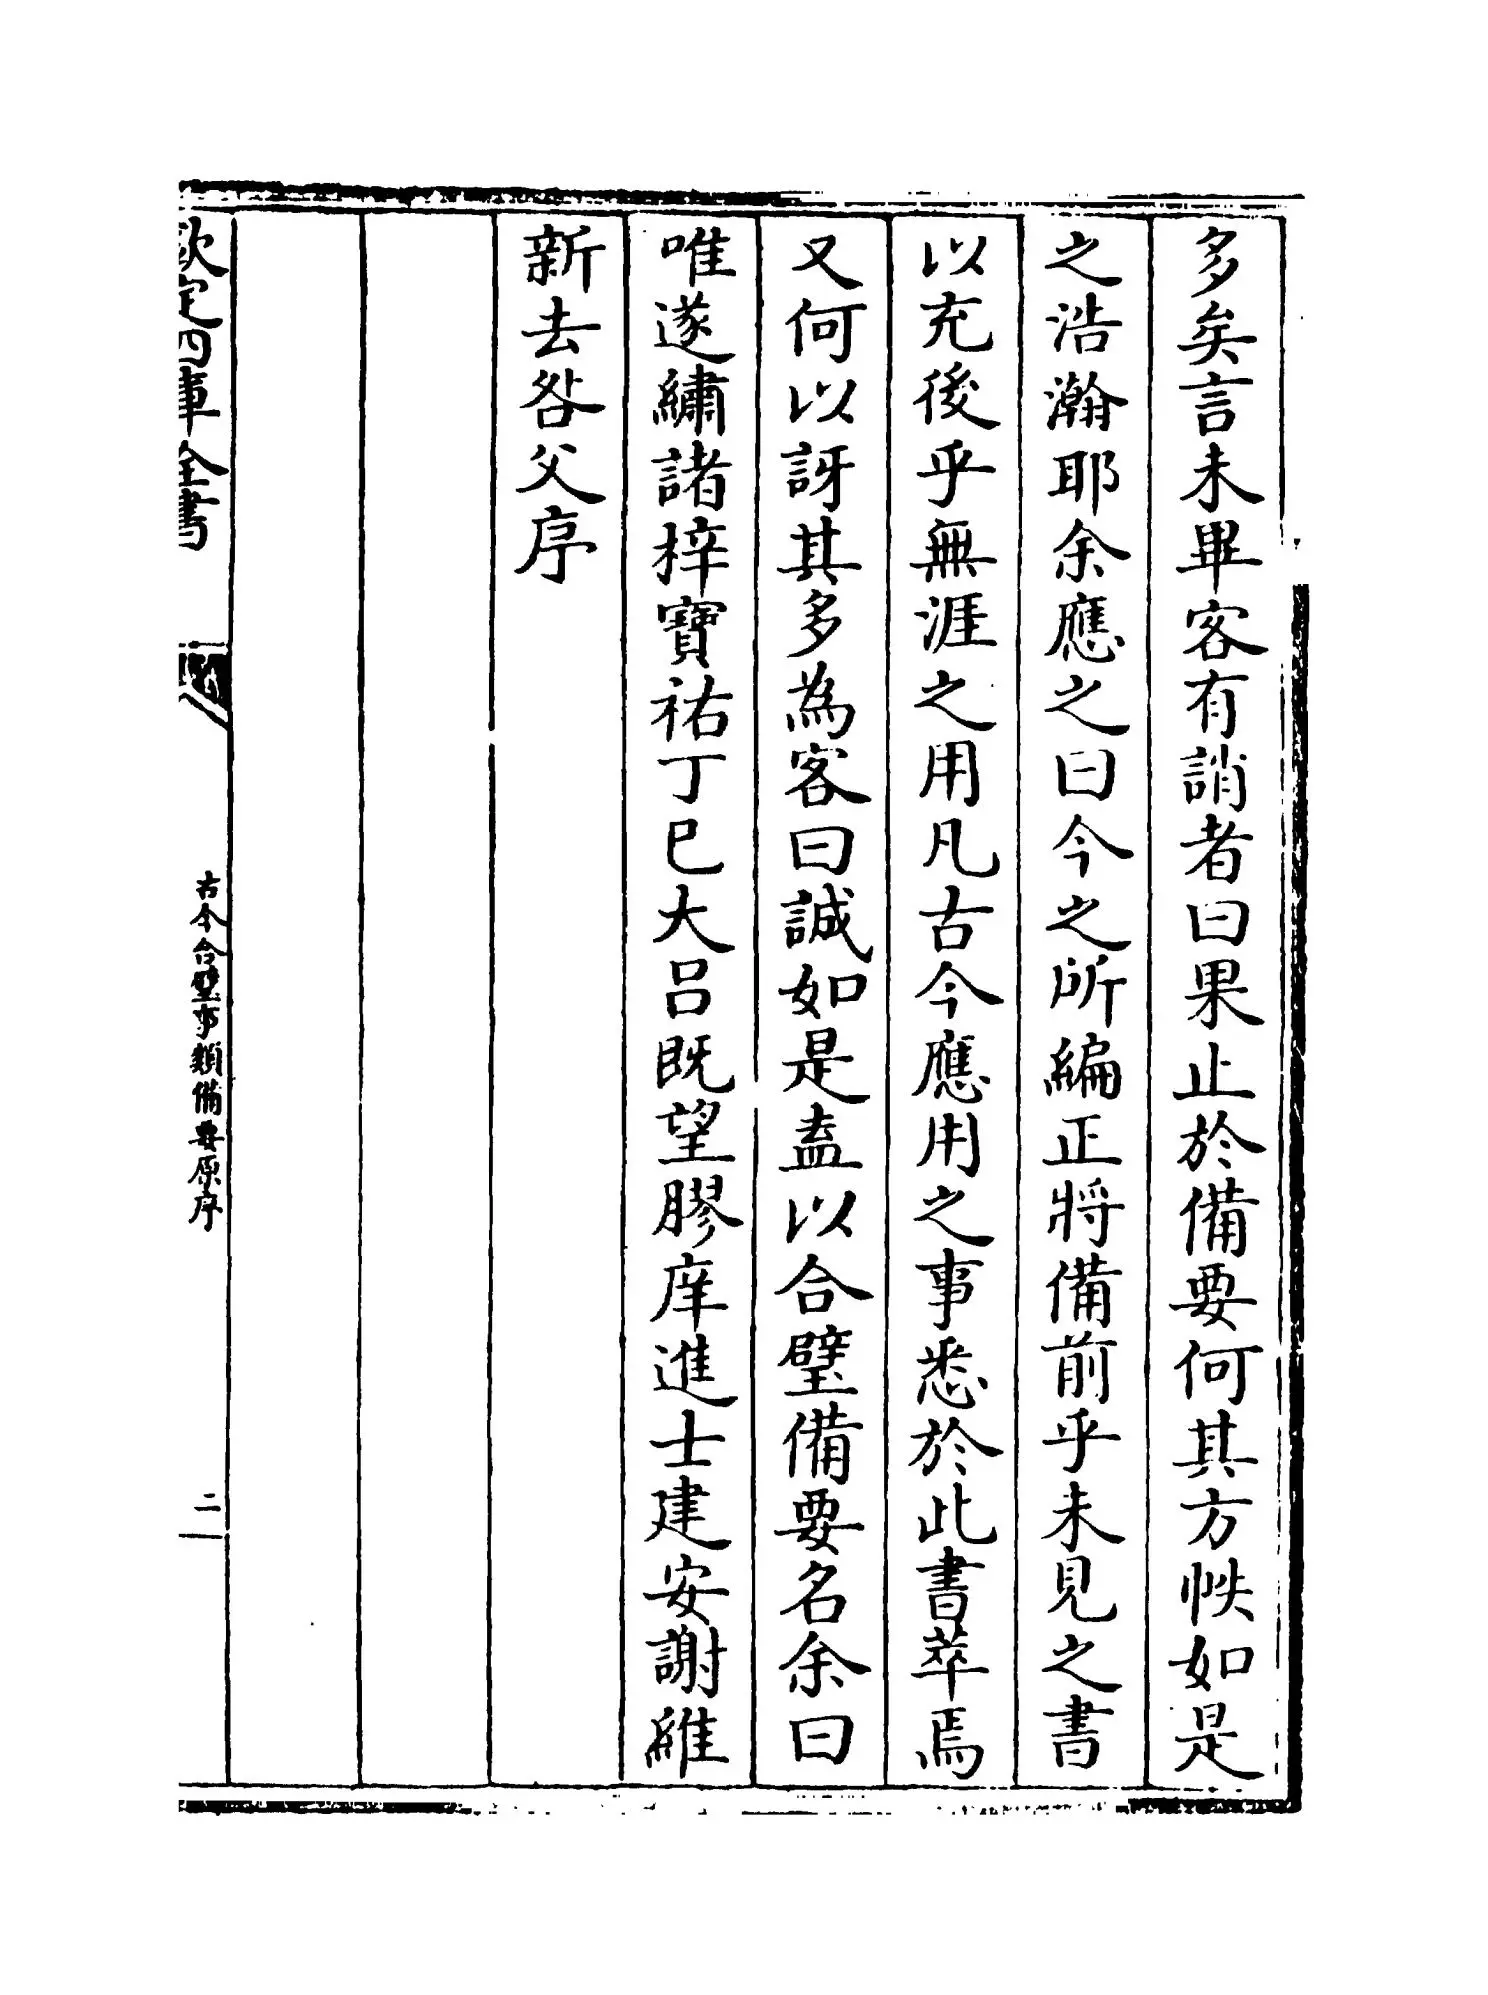 多矣言未畢客有誚者曰果止於備要何其方帙如是
之浩瀚耶余應之曰今之所編正將備前乎未見之書
以充後乎無涯之用凡古今應用之事悉於此書萃焉
又何以訝其多為客曰誠如是盍以合璧備要名余曰
唯遂繡諸梓寶祐丁巳大呂既望膠庠進士建安謝維
新去咎父序
欽定四庫全書
古今合璧事類備要原序
二